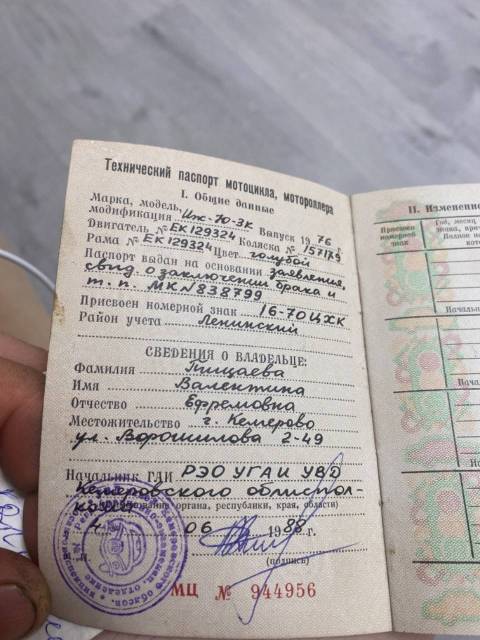 Технический паспорт мотоцикла, мотороллера
I. Общие данные
Марка, модель,
модификация Иж-Ю-3К Выпуск 1976 г.
Двигатель № ЕК129324 Коляска № 157179
Рама № ЕК129324 Цвет голубой
Паспорт выдан на основании заявления,
свид. о заключении брака и
т.п. МК №838799
Присвоен номерной знак 16-70ЦХК
Район учета Ленинский
СВЕДЕНИЯ О ВЛАДЕЛЬЦЕ:
Фамилия Пищаева
Имя Валентина
Отчество Ефремовна
Местожительство г. Кемерово
ул. Ворошилова 2-49
Начальник ГАИ РЭО УГАИ УВД
Кемеровского облиспол-
кома
органа, республики, края, области)
06 1988 г.
(подпись)
МЦ № 944956
II. Изменени
Присвоен
номерной
знак
Год, месяц
Начальн